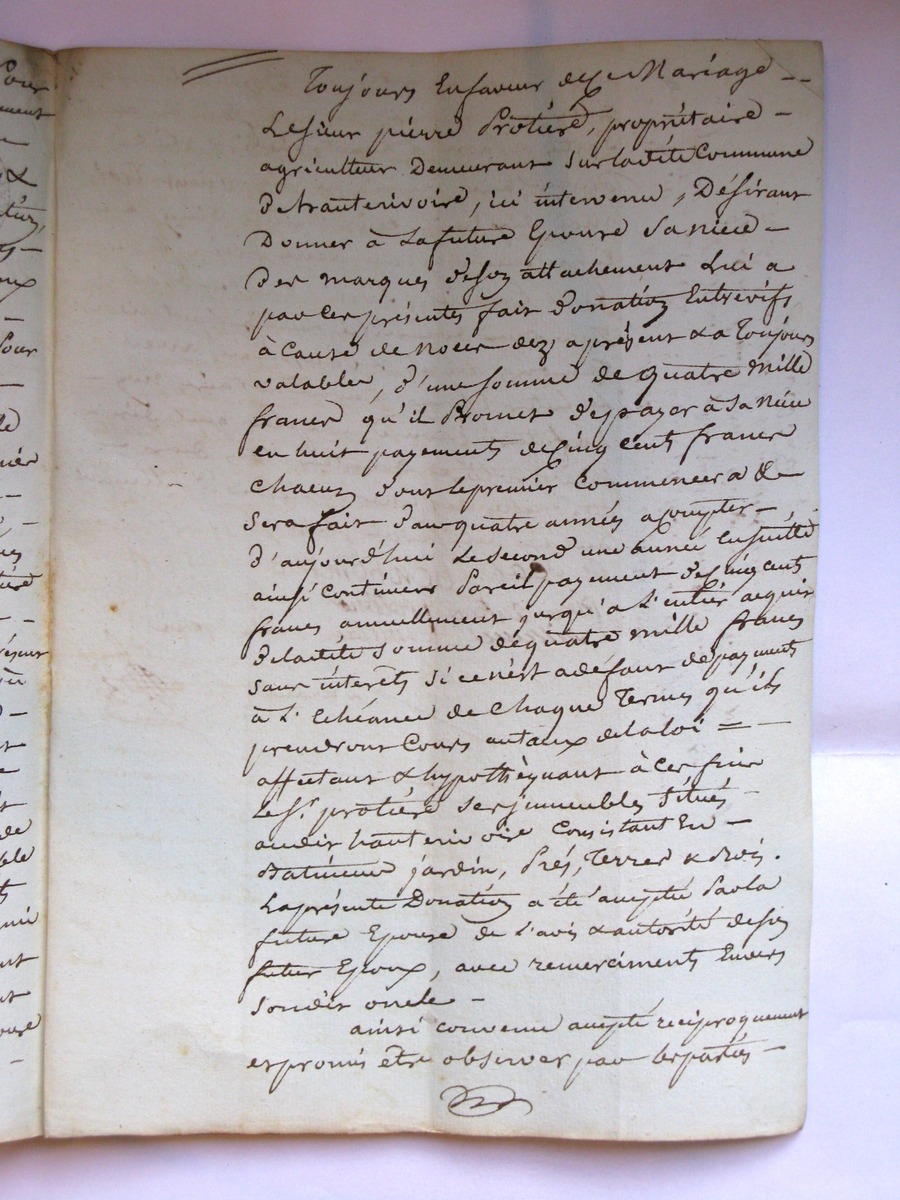 Pour
Toujours En faveur de Ce Mariage --
Le sieur pierre Protière, propriétaire -
agriculteur Demeurant sur la dite Commune
d'hauterivoire, ici intervenu, Désirant
Donner à La future Epouse Sa niece -
Des marques de son attachement Lui a
par Ces présentes fait donation Entrevifs
à Cause de noces dez a présent & a Toujours
valable, d'une somme de quatre mille
francs qu'il Promet de payer à Sa niéce
en huit payements de Cinq Cents francs
chacun dont le premier Commencera &
Sera fait dans quatre années a compter -
d'aujourd'hui Le second une année Ensuitte
ainsi Continuer Pareil payement de Cinq cents
francs annuellement jusqu'a L'entier acquis
de la dite somme de quatre mille francs
sans intérêts Si ce n'est a défaut de payements
à L'Echéance de Chaque Termes qu'ils
prendront Cours au taux de la loi = -
affectant & hypothèquant à Ces fins
Le Sr. protière ses jmmeubles Situés -
audit hauterivoire Consistant En -
Batiment jardin, Prés, Terres & Bois.
La présente Donation a été acceptée Par la
future Epouse de L'avis & autorité de son
futur Epoux, avec remerciments Envers
Son dit oncle -
ainsi convenu accepté réciproquement
et promis être observer par les parties -